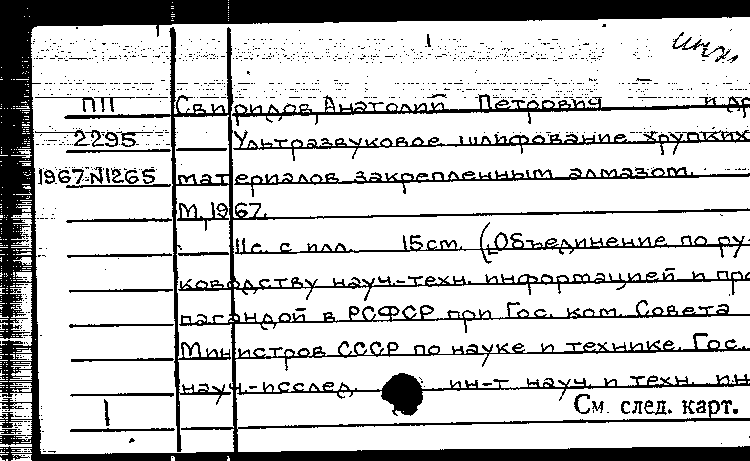 инж.
ПП Свиридов, Анатолий Петрович и др
2295 Ультразвуковое шлифование хрупких
1967-N1265 материалов закрепленным алмазом.
М., 1967.
11с. с илл. 15см. (Объединение по ру-
ководству науч.-техн. информацией и про
пагандой в РСФСР при Гос. ком. Совета
Министров СССР по науке и технике. Гос.
науч.-исслед. ин-т науч. и техн. ин
См. след. карт.